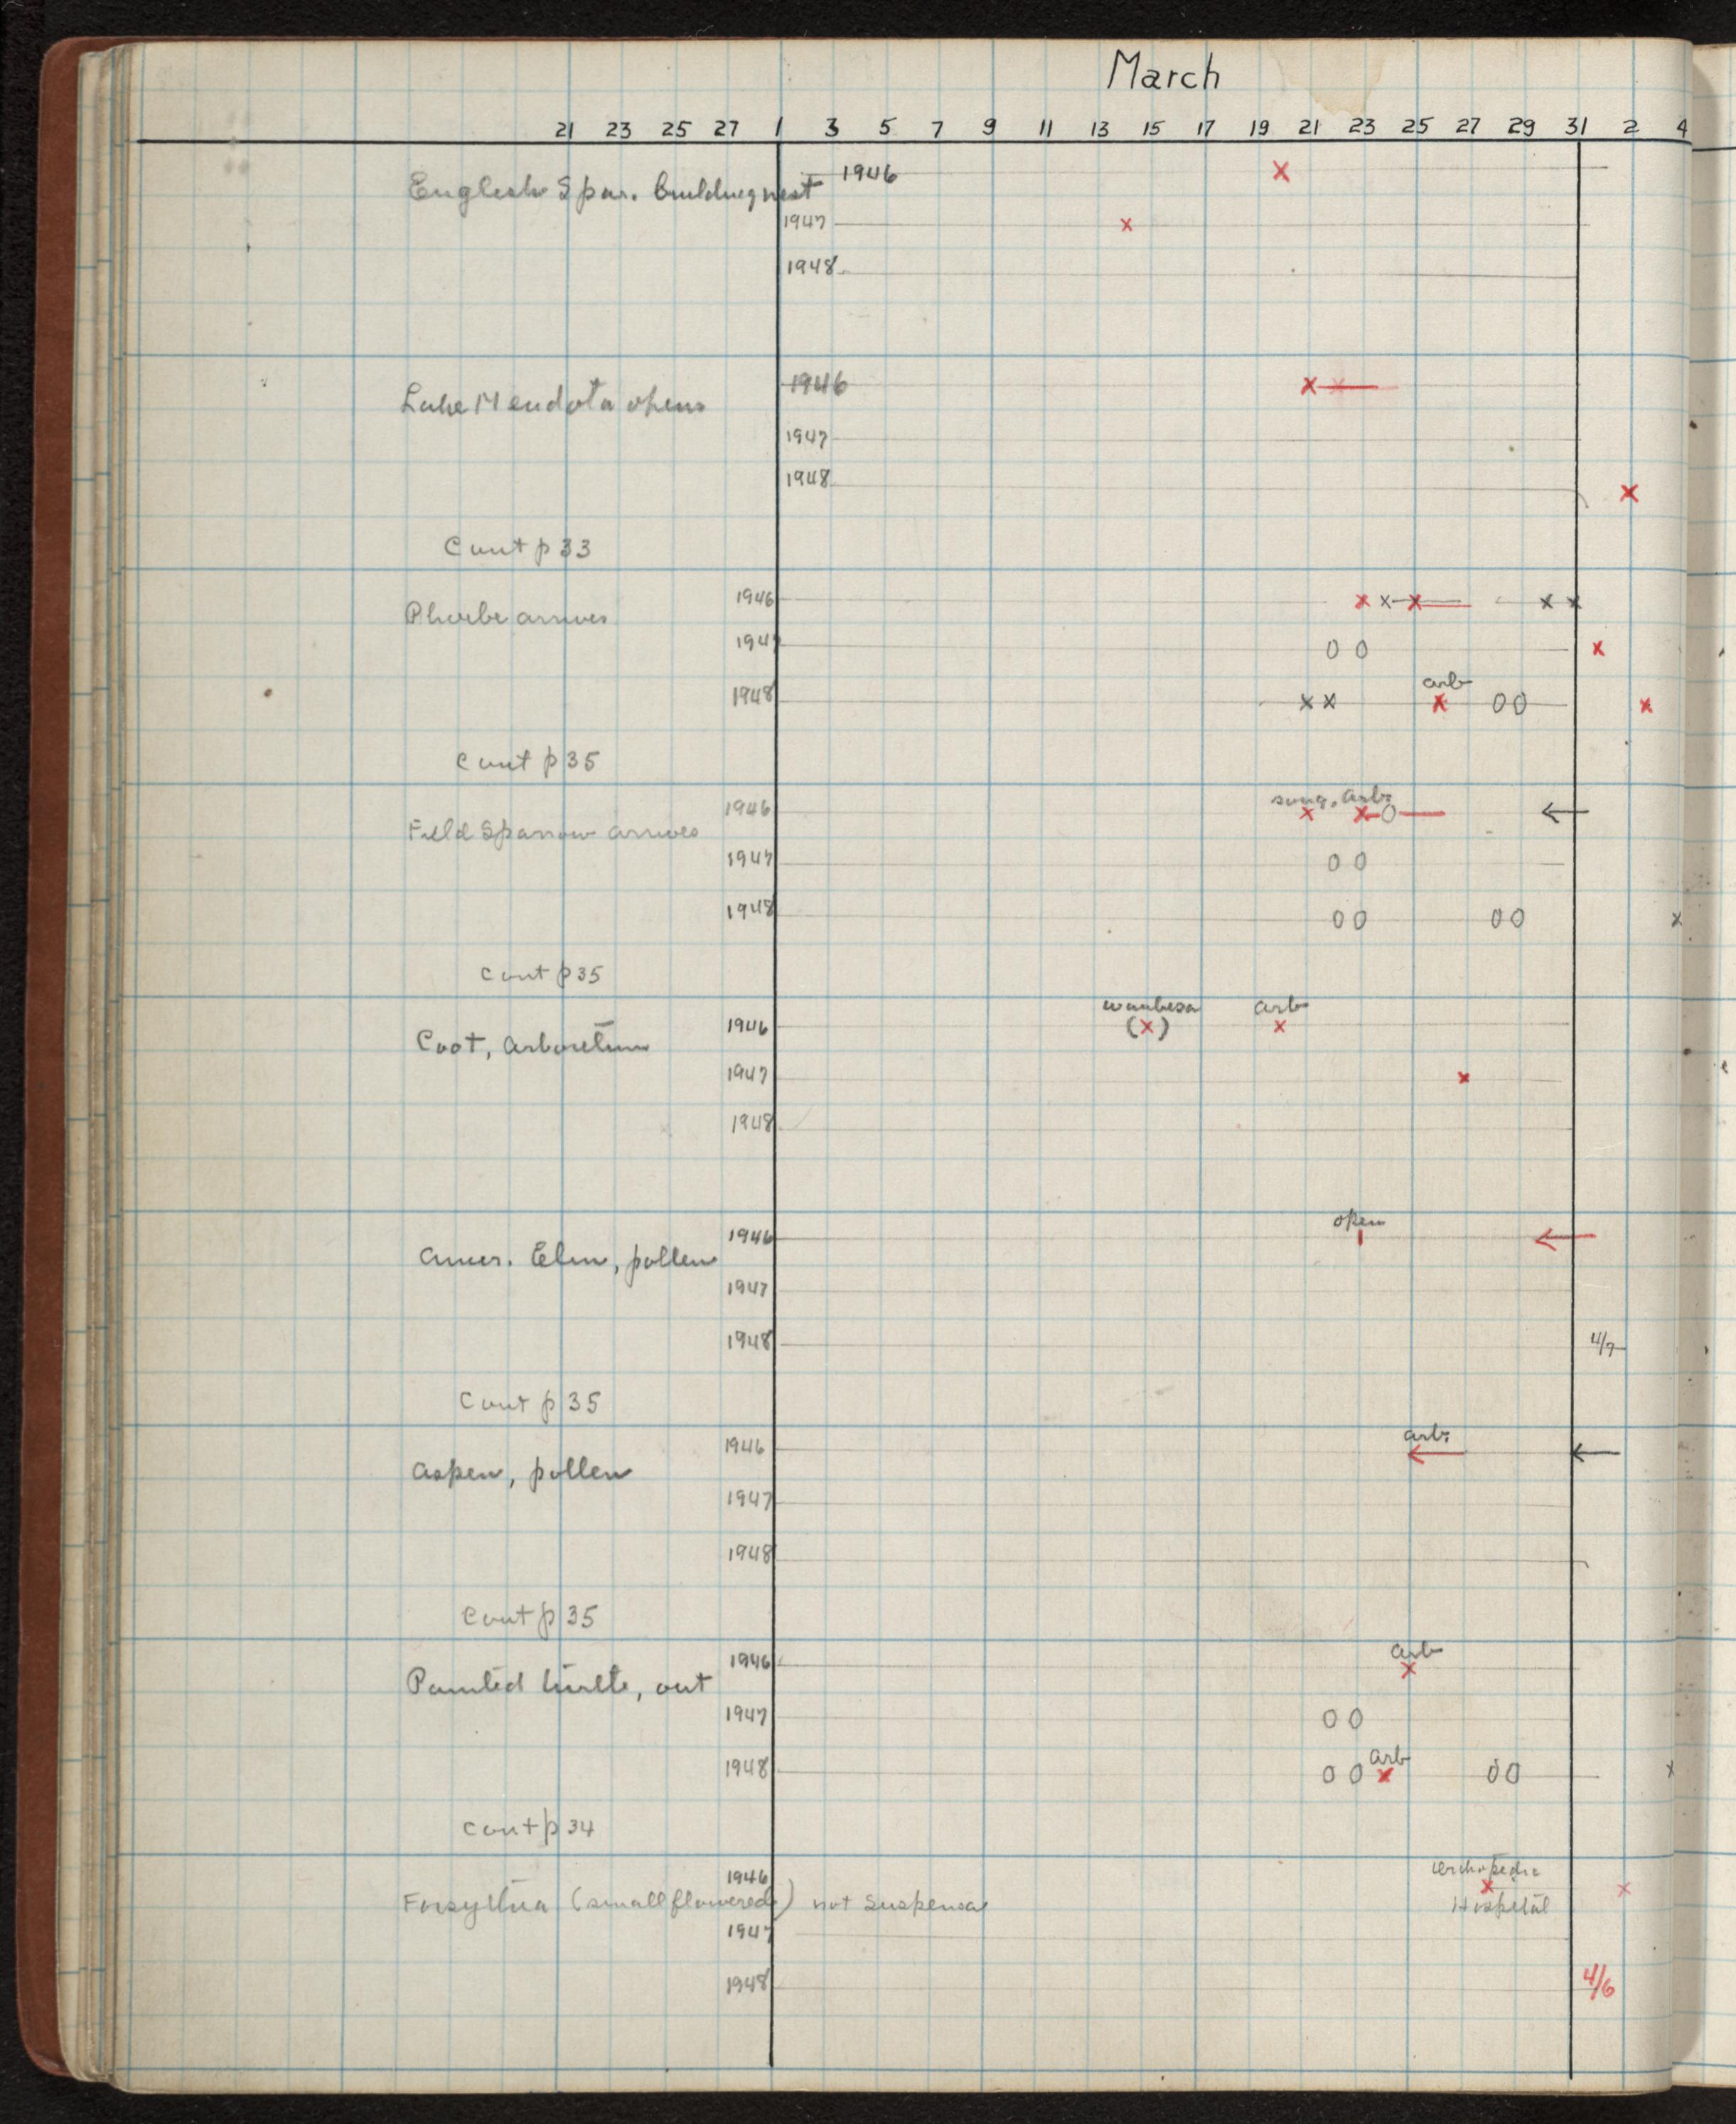 March
21 23 25 27 1 3 5 7 9 11 13 15 17 19 21 23 25 27 29 31 2 4
English Spar. building nest 1946 x
1947 x
1948
Lake Mendota opens 1946 x x
1947
1948 x
Cont p 33
Phoebe arrives 1946 x x x x x
1947 0 0 x
arb
1948 x x x 0 0 x
Cont p 35
song, arb.
Field Sparrow arrives 1946 x x 0 ←
1947 0 0
1948 0 0 0 0 x
Cont p 35
Waubesa arb
Coot, Arboretum 1946 (x) x
1947 x
1948
open
Amer. Elm, pollen 1946 ←
1947
1948 4/7
Cont p 35
arb.
Aspen, pollen 1946 ← ←
1947
1948
Cont p 35
arb
Painted turtle, out 1946 x
1947 0 0
arb
1948 0 0 x 0 0 x
Cont p 34
1946 x x
Forsythia (small flowered) not Suspensa Hospital
1947
1948 4/6